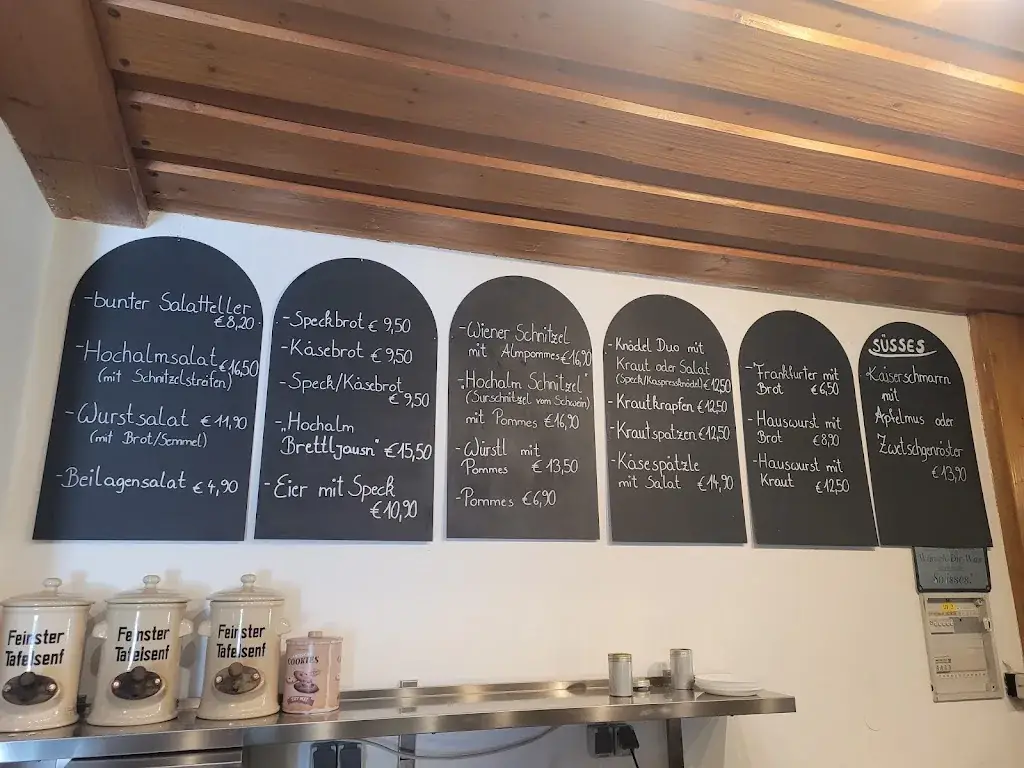 -bunter Salatteller
€8,20
-Hochalmsalat €16,50
(mit Schnitzelstreifen)
-Wurstsalat €11,90
(mit Brot/Semmel)
-Beilagensalat €4,90
-Speckbrot € 9,50
-Käsebrot € 9,50
-Speck/Käsebrot
€ 9,50
-„Hochalm
Brettljausn" €15,50
-Eier mit Speck
€10,90
-Wiener Schnitzel
mit Almpommes €16,90
-„Hochalm Schnitzel"
(Surschnitzel vom Schwein)
mit Pommes €16,90
-Würstl mit
Pommes € 13,50
-Pommes €6,90
-Knödel Duo mit
Kraut oder Salat
(Speck/Kaspressknödel) €12,50
-Krautkrapfen €12,50
-Krautspatzen €12,50
-Käsespätzle
mit Salat €14,90
-Frankfurter mit
Brot €6,50
-Hauswurst mit
Brot €8,90
-Hauswurst mit
Kraut €12,50
SÜSSES
-Kaiserschmarrn
mit
Apfelmus oder
Zwetschgenröster
€13,90
Feinster
Tafelsenf
Feinster
Tafelsenf
Feinster
Tafelsenf
COOKIES